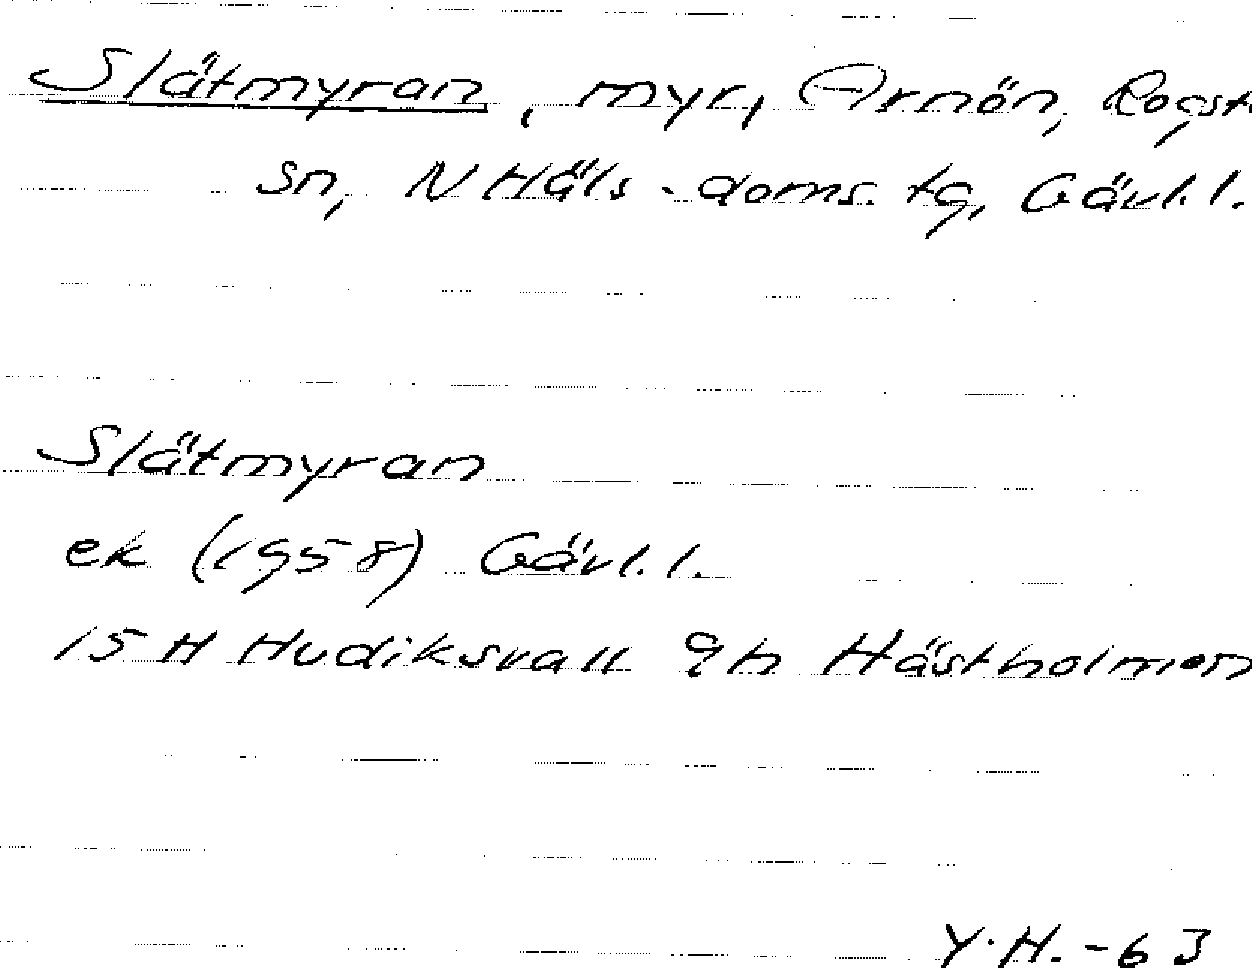 Slåtmyran, myr, Arnön, Rogst.
sn, N Häls. doms. tg, Gävl.l.
Slåtmyran
ek (1958) Gävl.l.
15 H Hudiksvall 9h Hästholmen
Y.H. -63